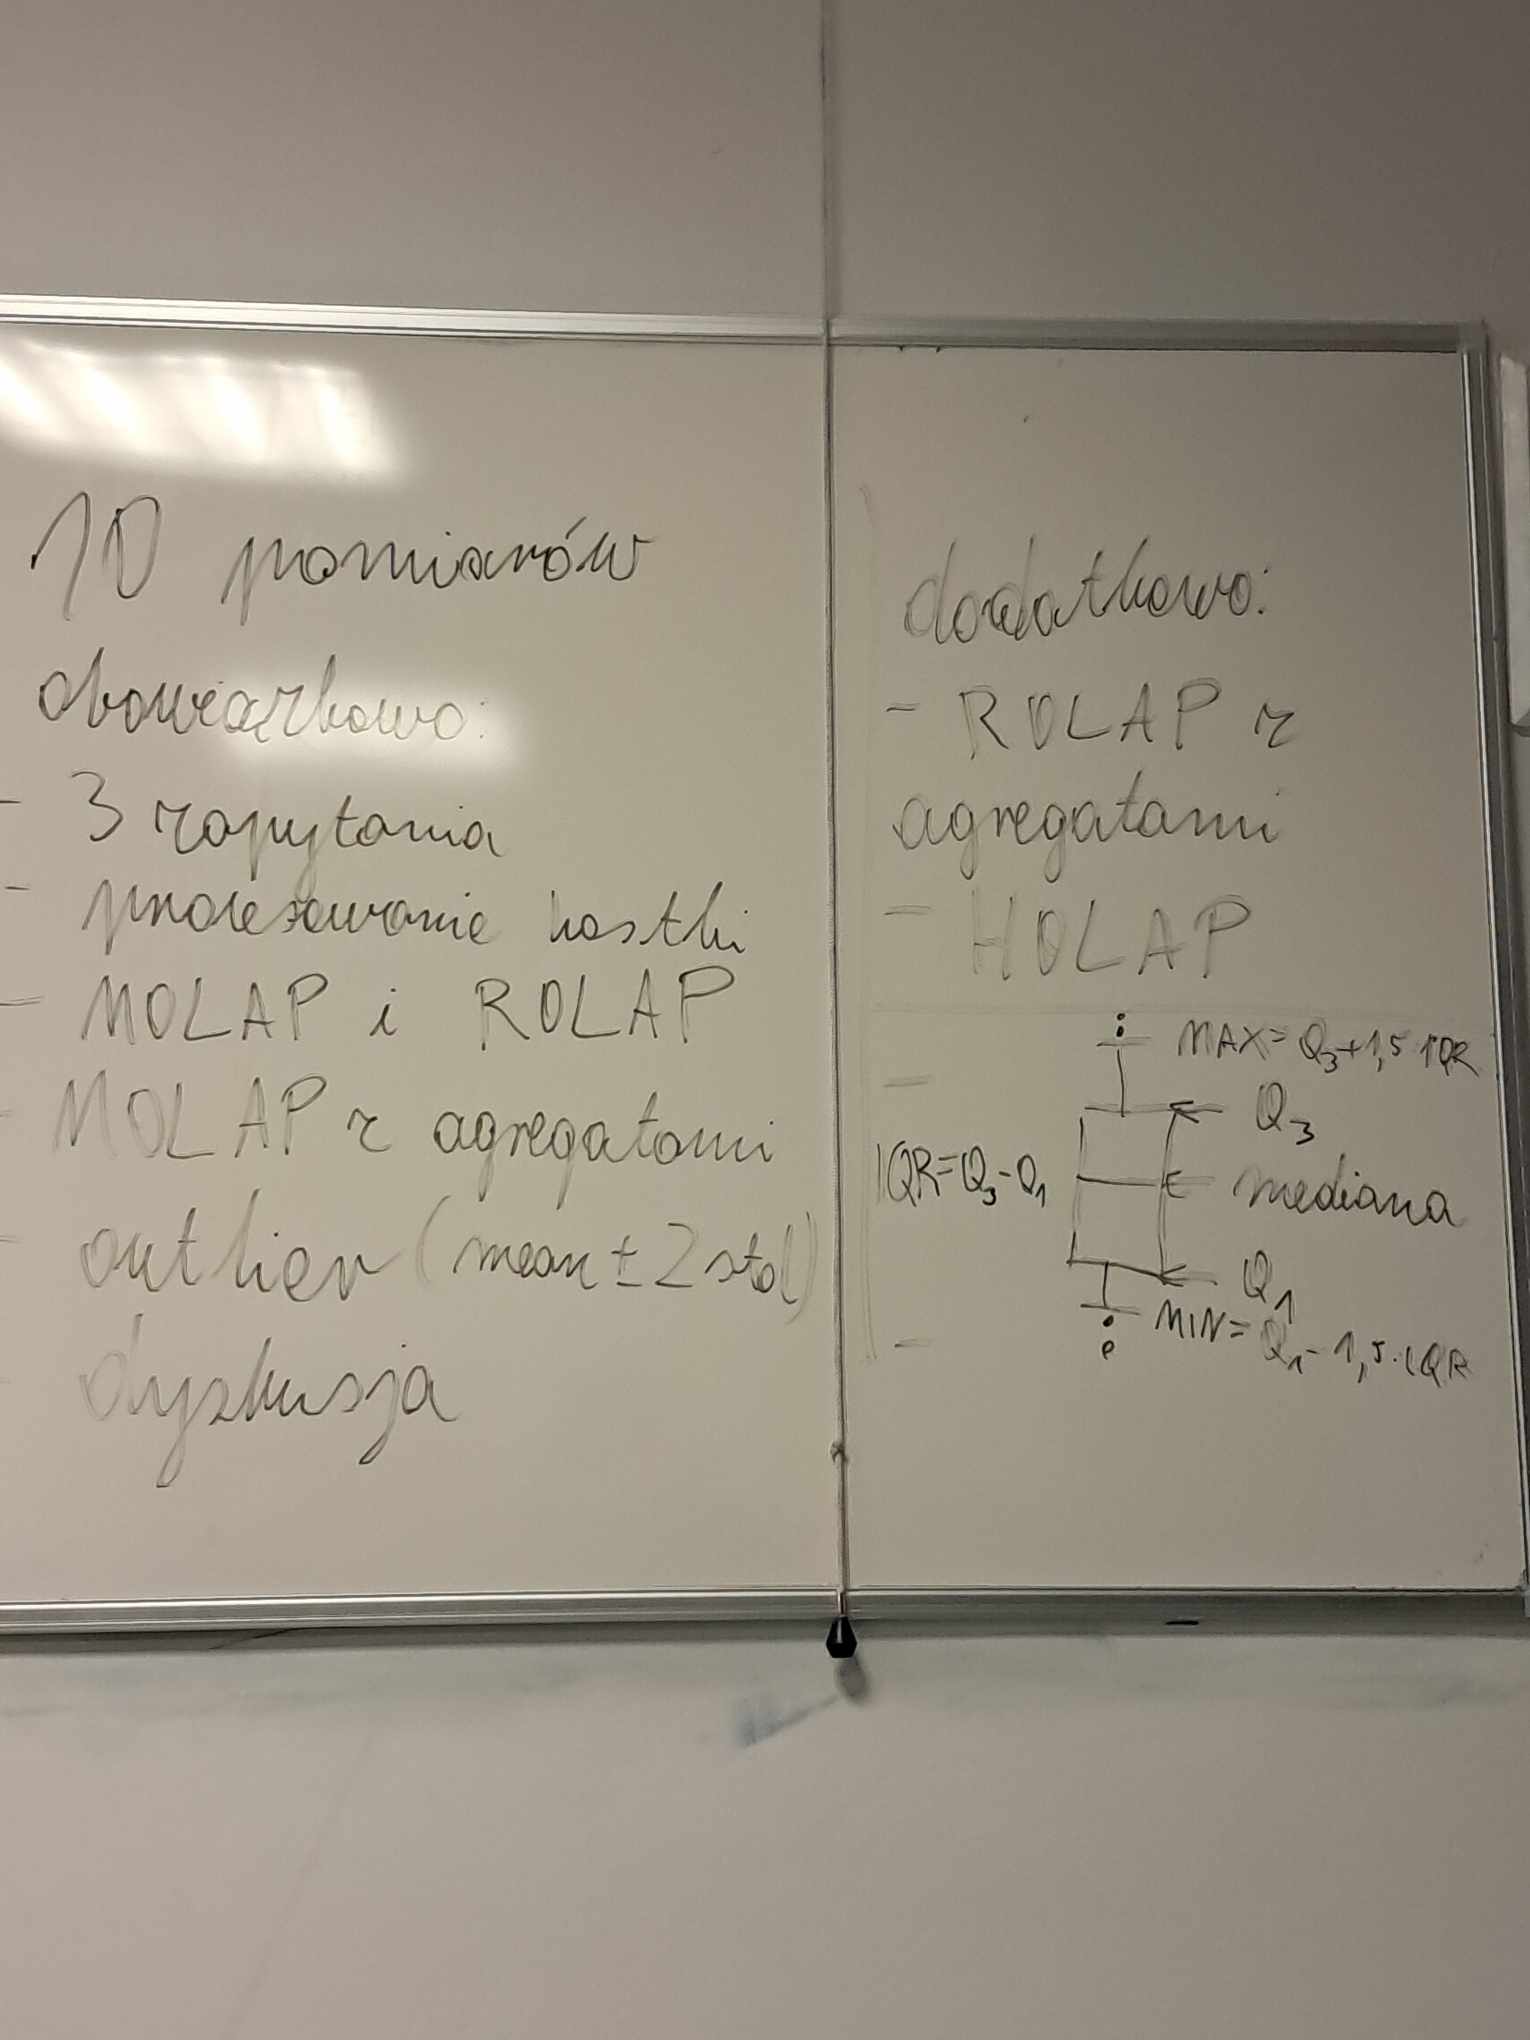 10 pomiarów
obowiązkowo:
- 3 zapytania
- procesowanie kostki
- MOLAP i ROLAP
- MOLAP z agregatami
- outlier (mean ± 2 std)
- dyskusja
dodatkowo:
- ROLAP z
agregatami
- HOLAP
-
MAX = Q3 + 1,5 · IQR
Q3
IQR = Q3 - Q1
mediana
Q1
MIN = Q1 - 1,5 · IQR
-